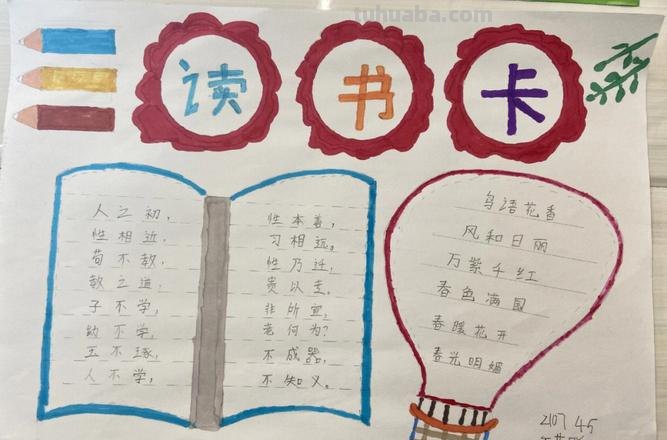 tuhuaba.com
读书卡
人之初, 性本善,
性相近, 习相远。
苟不教, 性乃迁,
教之道, 贵以专。
子不学, 非所宜,
幼不学, 老何为?
玉不琢, 不成器,
人不学, 不知义。
鸟语花香
风和日丽
万紫千红
春色满园
春暖花开
春光明媚
2107 45